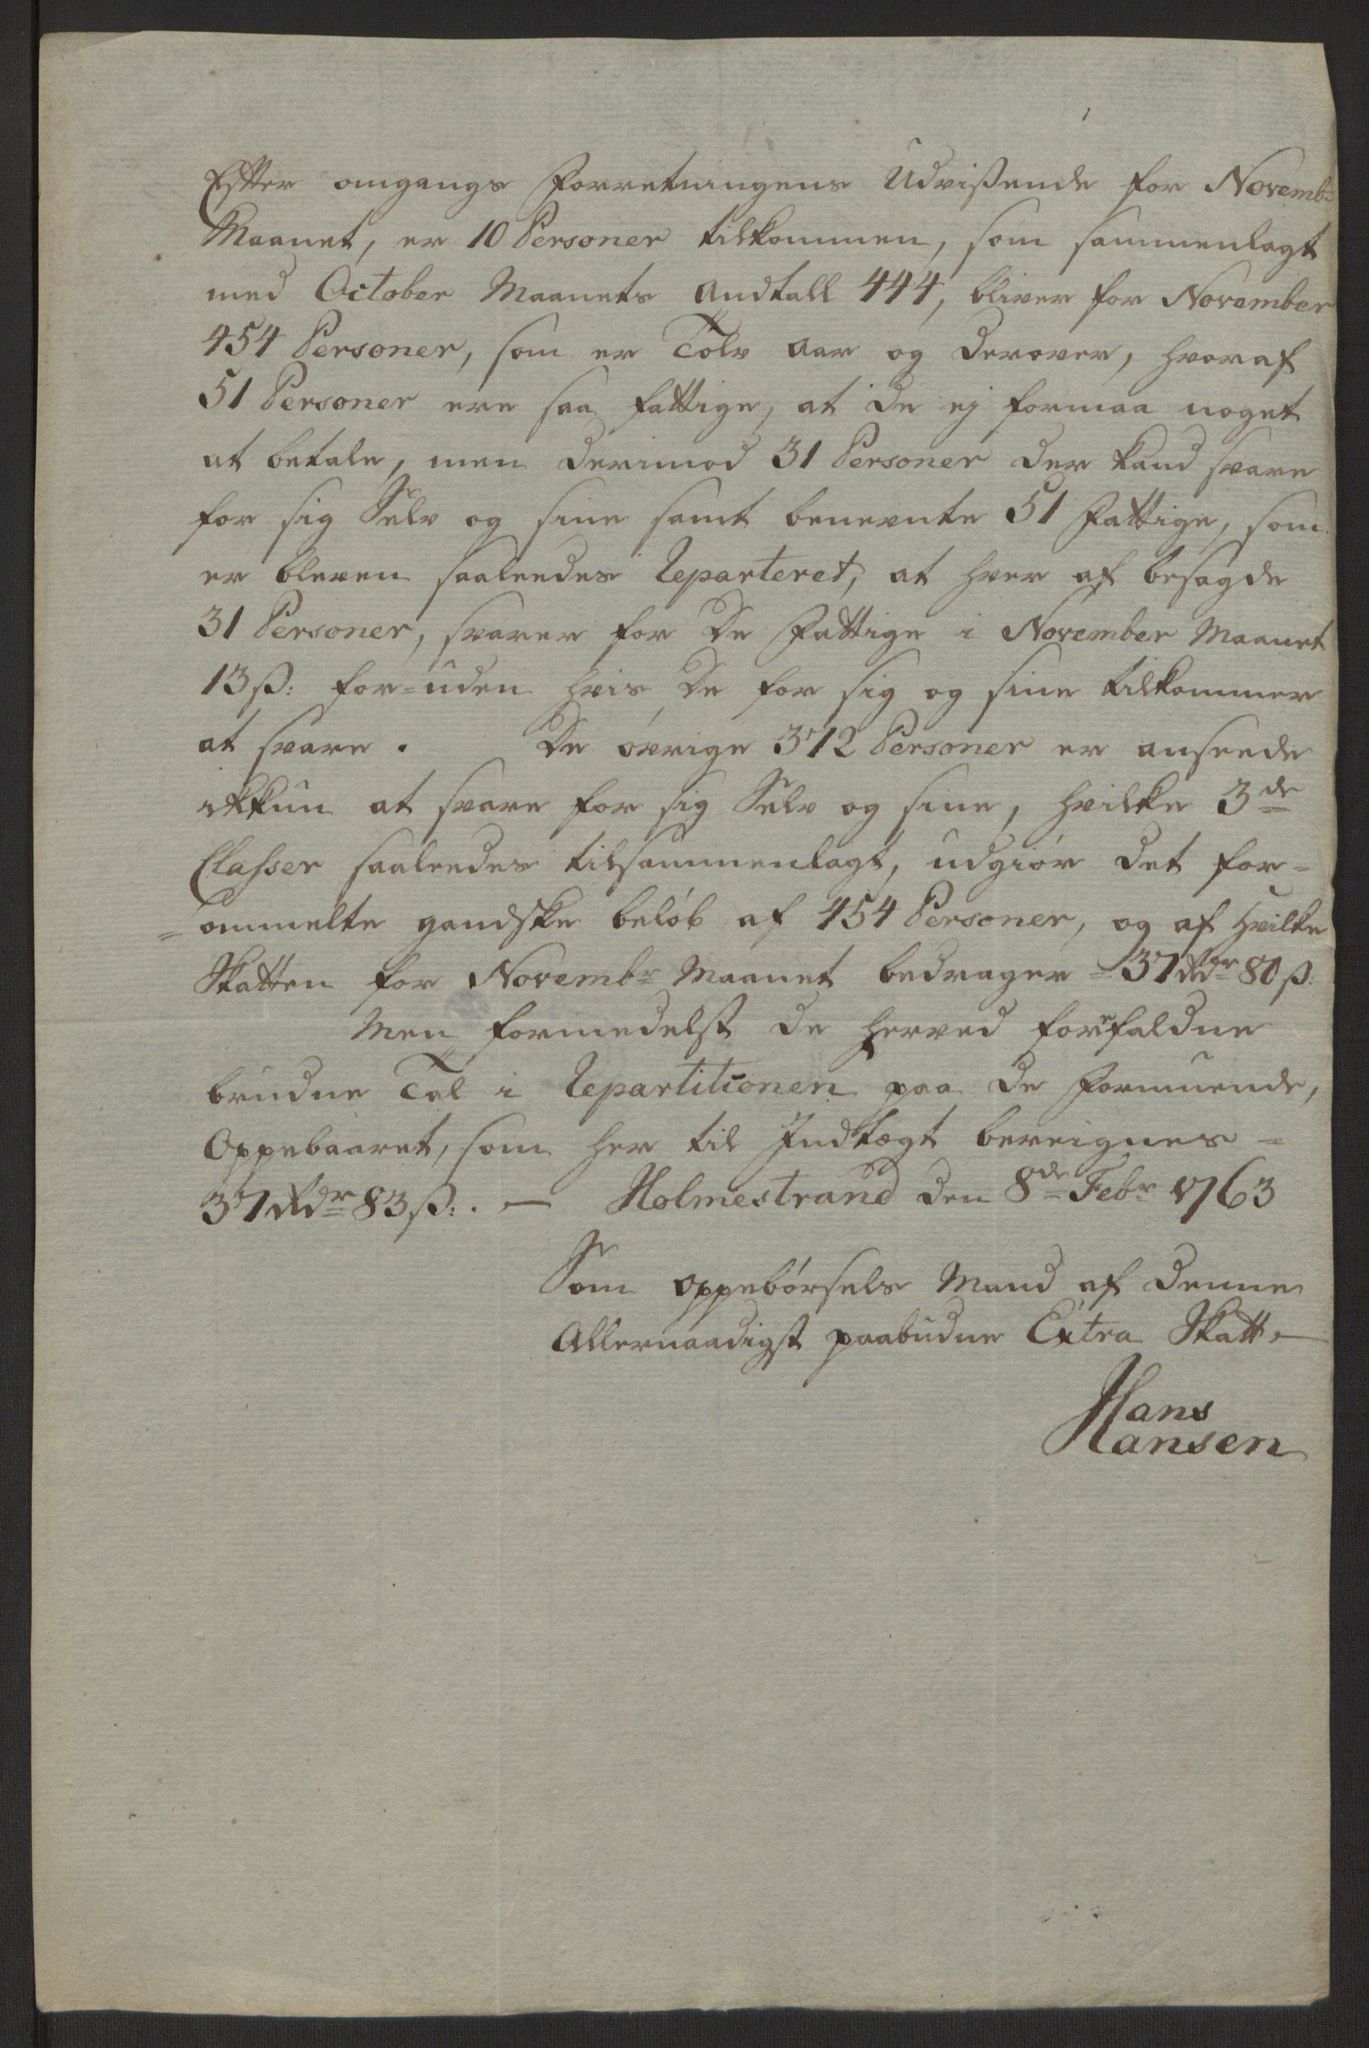 Efter omgangs Forretningens Udvißende for Novembr
Maanet, er 10 Personer tilkommen, som sammenlagt
med October Maanets Andtall 444, bliver for November
454 Personer, som er Tolv Aar og derover, hvoraf
51 Personer ere saa fattige, at de ej formaa noget
at betale, men derimod 31 Personer der kand svare
for sig Selv og sine samt benevnte 51 Fattige, som
er bleven saaleedes Reparteret, at hver af besagde
31 Personer, svarer for De Fattige i November Maanet
13 ß: for=uden hvis De for sig og sine tilkommer
at svare. De øvrige 372 Personer er anseede
ikkun at svare for sig Selv og sine, hvilke 3de
Classer saaleedes tilsammenlagt, udgiør det for=
=ommelte gandske beløb af 454 Personer, og af hvilke
Skatten for Novembr Maanet bedrager = 37 Rdr 80 ß:
Men formedelst de herved forefaldne
brudne Tal i Repartitionen paa de Formuende,
Oppebaaret, som her til Indtægt bereignes =
37 Rdr 83 ß: . — Holmestrand den 8de Febr 1763
Som Oppebørsels Mand af denne
Allernaadigst paabudne Extra Skatt —
Hans
Hansen